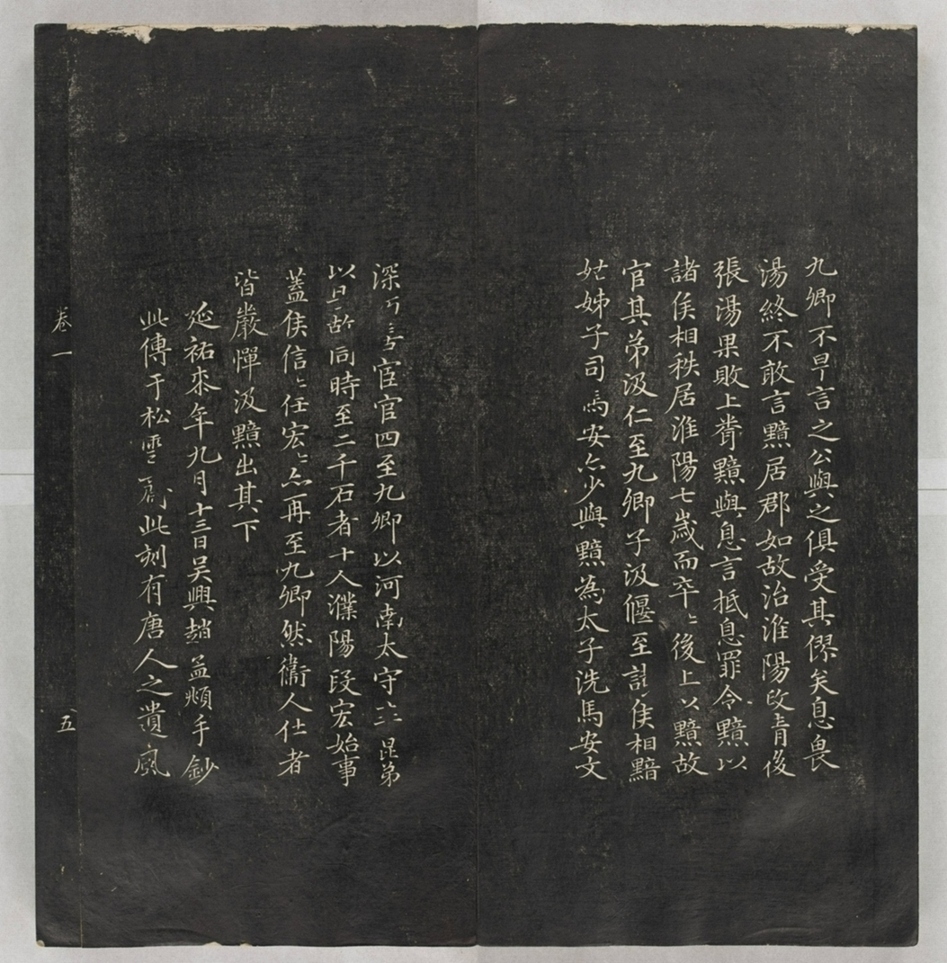 九卿不早言之公與之俱受其僇矣息畏
湯終不敢言黯居郡如故治淮陽政青後
張湯果敗上聞黯與息言抵息罪令黯以
諸侯相秩居淮陽七歲而卒〻後上以黯故
官其弟汲仁至九卿子汲偃至諸侯相黯
姑姊子司馬安亦少與黯為太子洗馬安文
深巧善宦官四至九卿以河南太守卒昆弟
以安故同時至二千石者十人濮陽段宏始事
蓋侯信〻任宏〻亦再至九卿然衞人仕者
皆嚴憚汲黯出其下
延祐柒年九月十三日吴興趙孟頫手鈔
此傳于松雪齋此刻有唐人之遺風
卷一
五